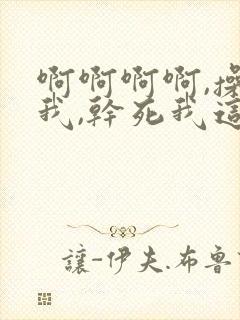 啊啊啊啊,操
我,幹死我這
讓-伊夫.布魯